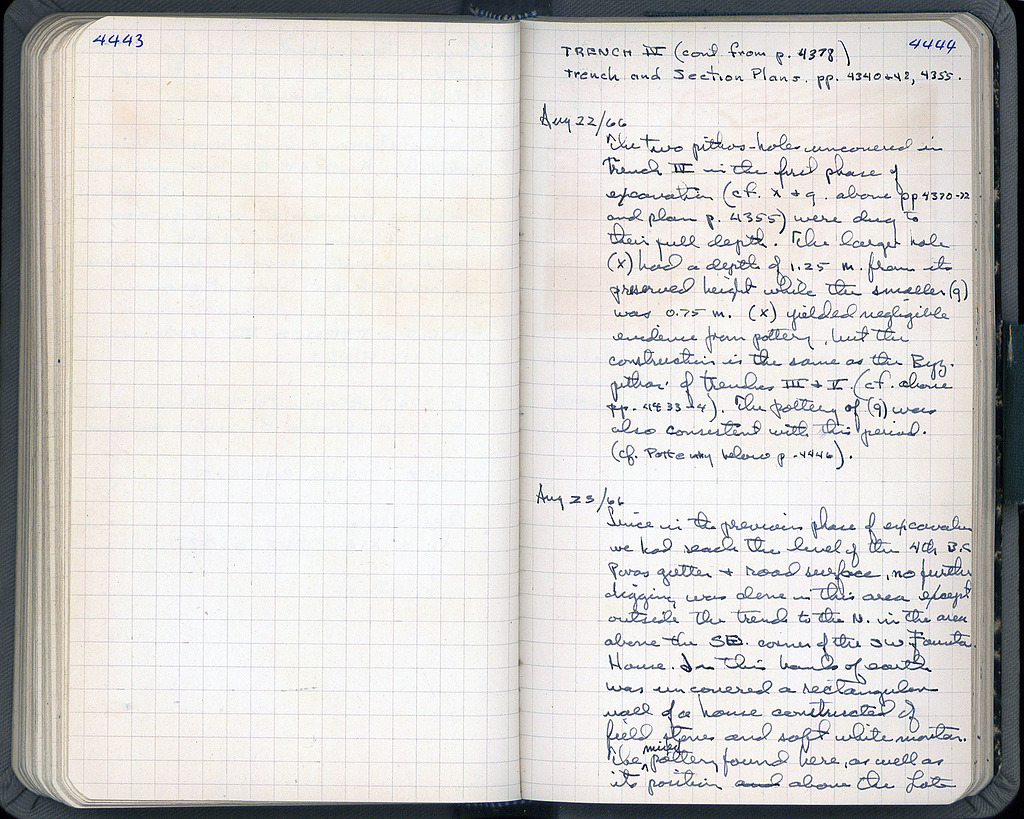 4443
4444
TRENCH IV (cont from p. 4378)
Trench and Section Plans. pp. 4340+42, 4355.
Aug 22/66
The two pithos-holes uncovered in
Trench IV in the first phase of
excavation (cf. x + q. above pp 4370-72
and plan p. 4355) were dug to
their full depth. The larger hole
(x) had a depth of 1.25 m. from its
preserved height while the smaller (q)
was 0.75 m. (x) yielded negligible
evidence from pottery, but the
construction is the same as the Byz.
pithoi of trenches III + V. (cf. above
pp. 4433-4). The pottery of (q) was
also consistent with this period.
(cf. Pottery below p. 4446).
Aug 23/66
Since in the previous phase of excavation
we had reach the level of the 4th B.C
Poros gutter + road surface, no further
digging was done in this area except
outside the trench to the N. in the area
above the SE. corner of the SW. Fountain
House. In this bank of earth
was uncovered a rectangular
wall of a house constructed of
field stones and soft white mortar.
The mixed pottery found here, as well as
its position above the Late